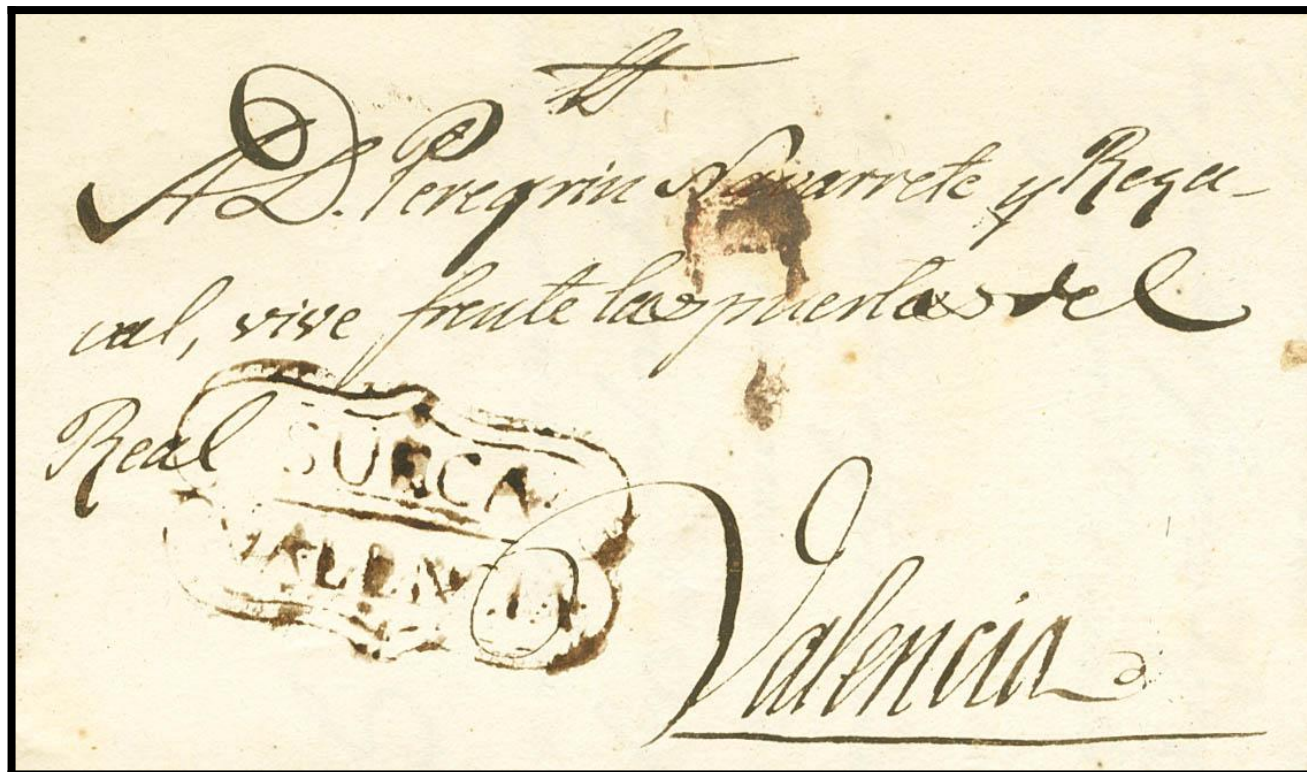 A D. Peregrin Navarrete y Rega-
cal, vive frente las puertas del
Real
SUECA
VALENCIA
Valencia